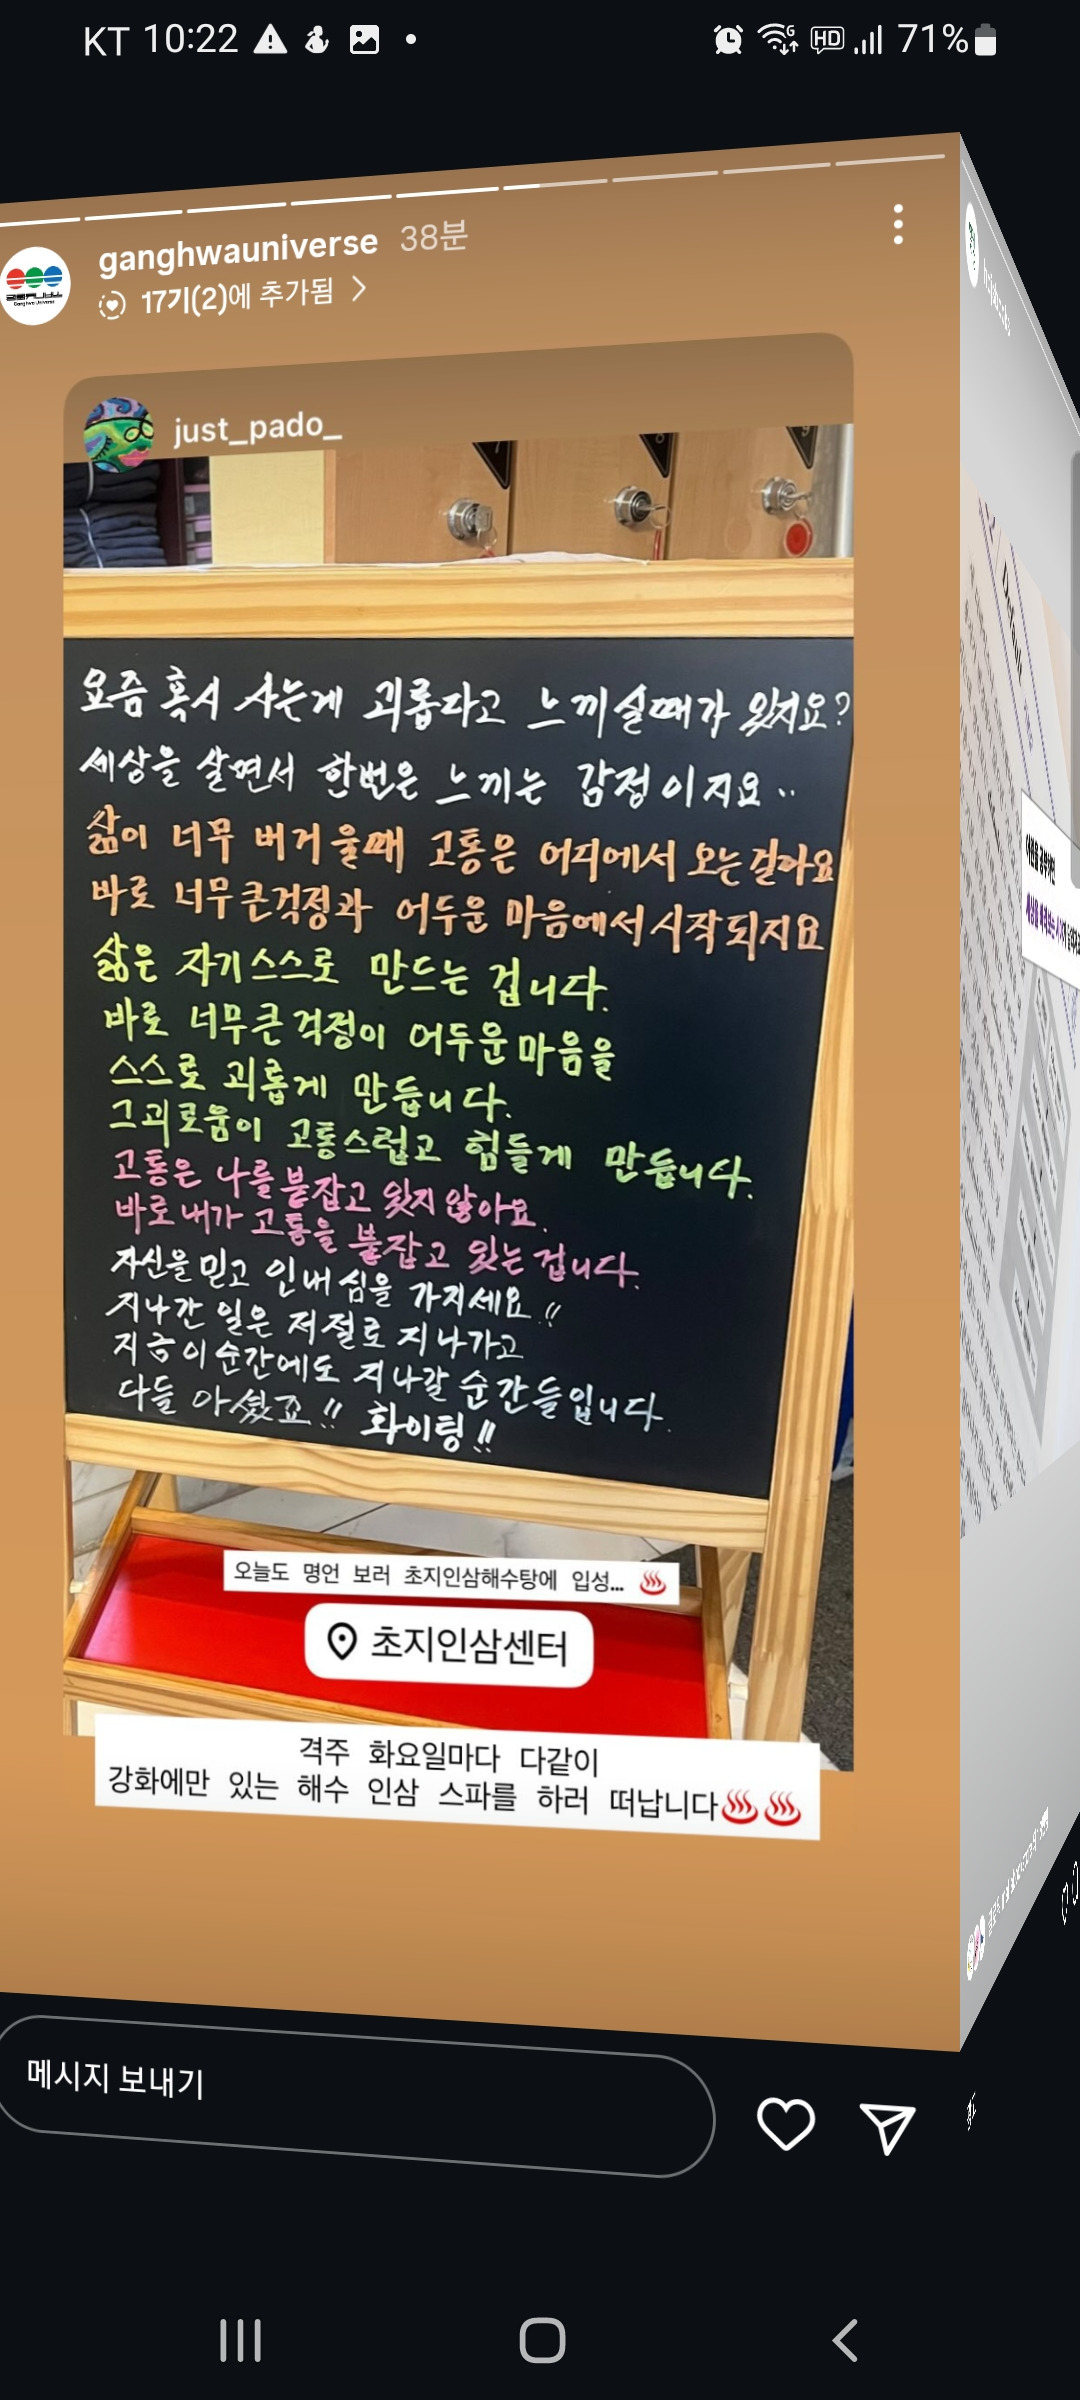 KT 10:22
HD 71%
ganghwauniverse 38분
17기(2)에 추가됨
just_pado_
요즘 혹시 사는게 괴롭다고 느끼실때가 있지요?
세상을 살면서 한번은 느끼는 감정이지요..
삶이 너무 버거울때 고통은 어디에서 오는걸까요
바로 너무큰걱정과 어두운 마음에서 시작되지요
삶은 자기스스로 만드는 겁니다.
바로 너무큰걱정이 어두운마음을
스스로 괴롭게 만듭니다.
그괴로움이 고통스럽고 힘들게 만듭니다.
고통은 나를붙잡고 있지않아요.
바로내가 고통을 붙잡고 있는겁니다.
자신을믿고 인내심을 가지세요!!
지나간 일은 저절로 지나가고
지금이순간에도 지나갈 순간들입니다.
다들 아셨죠!! 화이팅!!
오늘도 명언 보러 초지인삼해수탕에 입성...
초지인삼센터
격주 화요일마다 다같이
강화에만 있는 해수 인삼 스파를 하러 떠납니다
메시지 보내기